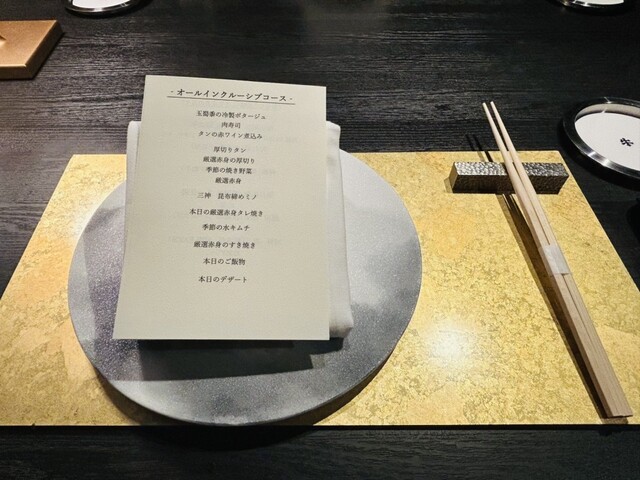 - オールインクルーシブコース -
玉葱の冷製ポタージュ
肉寿司
タンの赤ワイン煮込み
厚切りタン
厳選赤身の厚切り
季節の焼き野菜
厳選赤身
三神　昆布締めミノ
本日の厳選赤身タレ焼き
季節の水キムチ
厳選赤身のすき焼き
本日のご飯物
本日のデザート